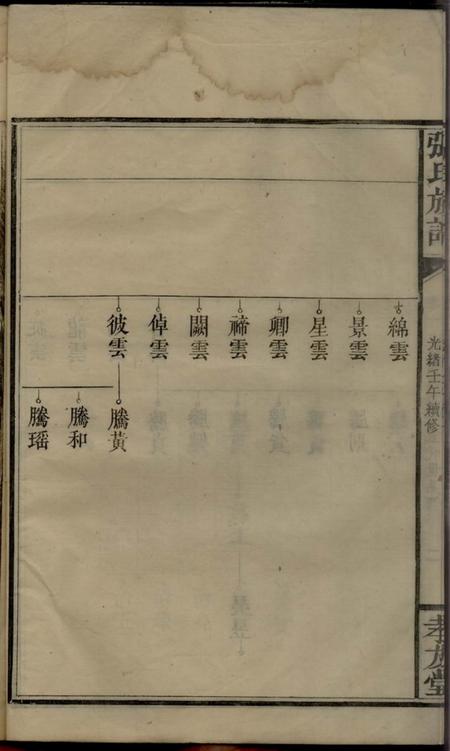 張氏族譜
光緒壬午續修
孝友堂
綿雲
景雲
星雲
卿雲
禘雲
闞雲
倬雲
彼雲
騰黃
騰和
騰瑶